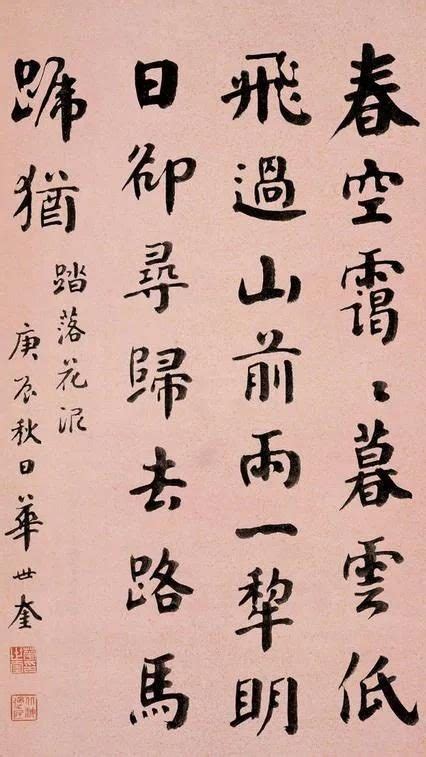 春空靄々暮雲低
飛過山前雨一犂明
日卻尋歸去路馬
蹄猶
踏落花泥
庚辰秋日華世奎